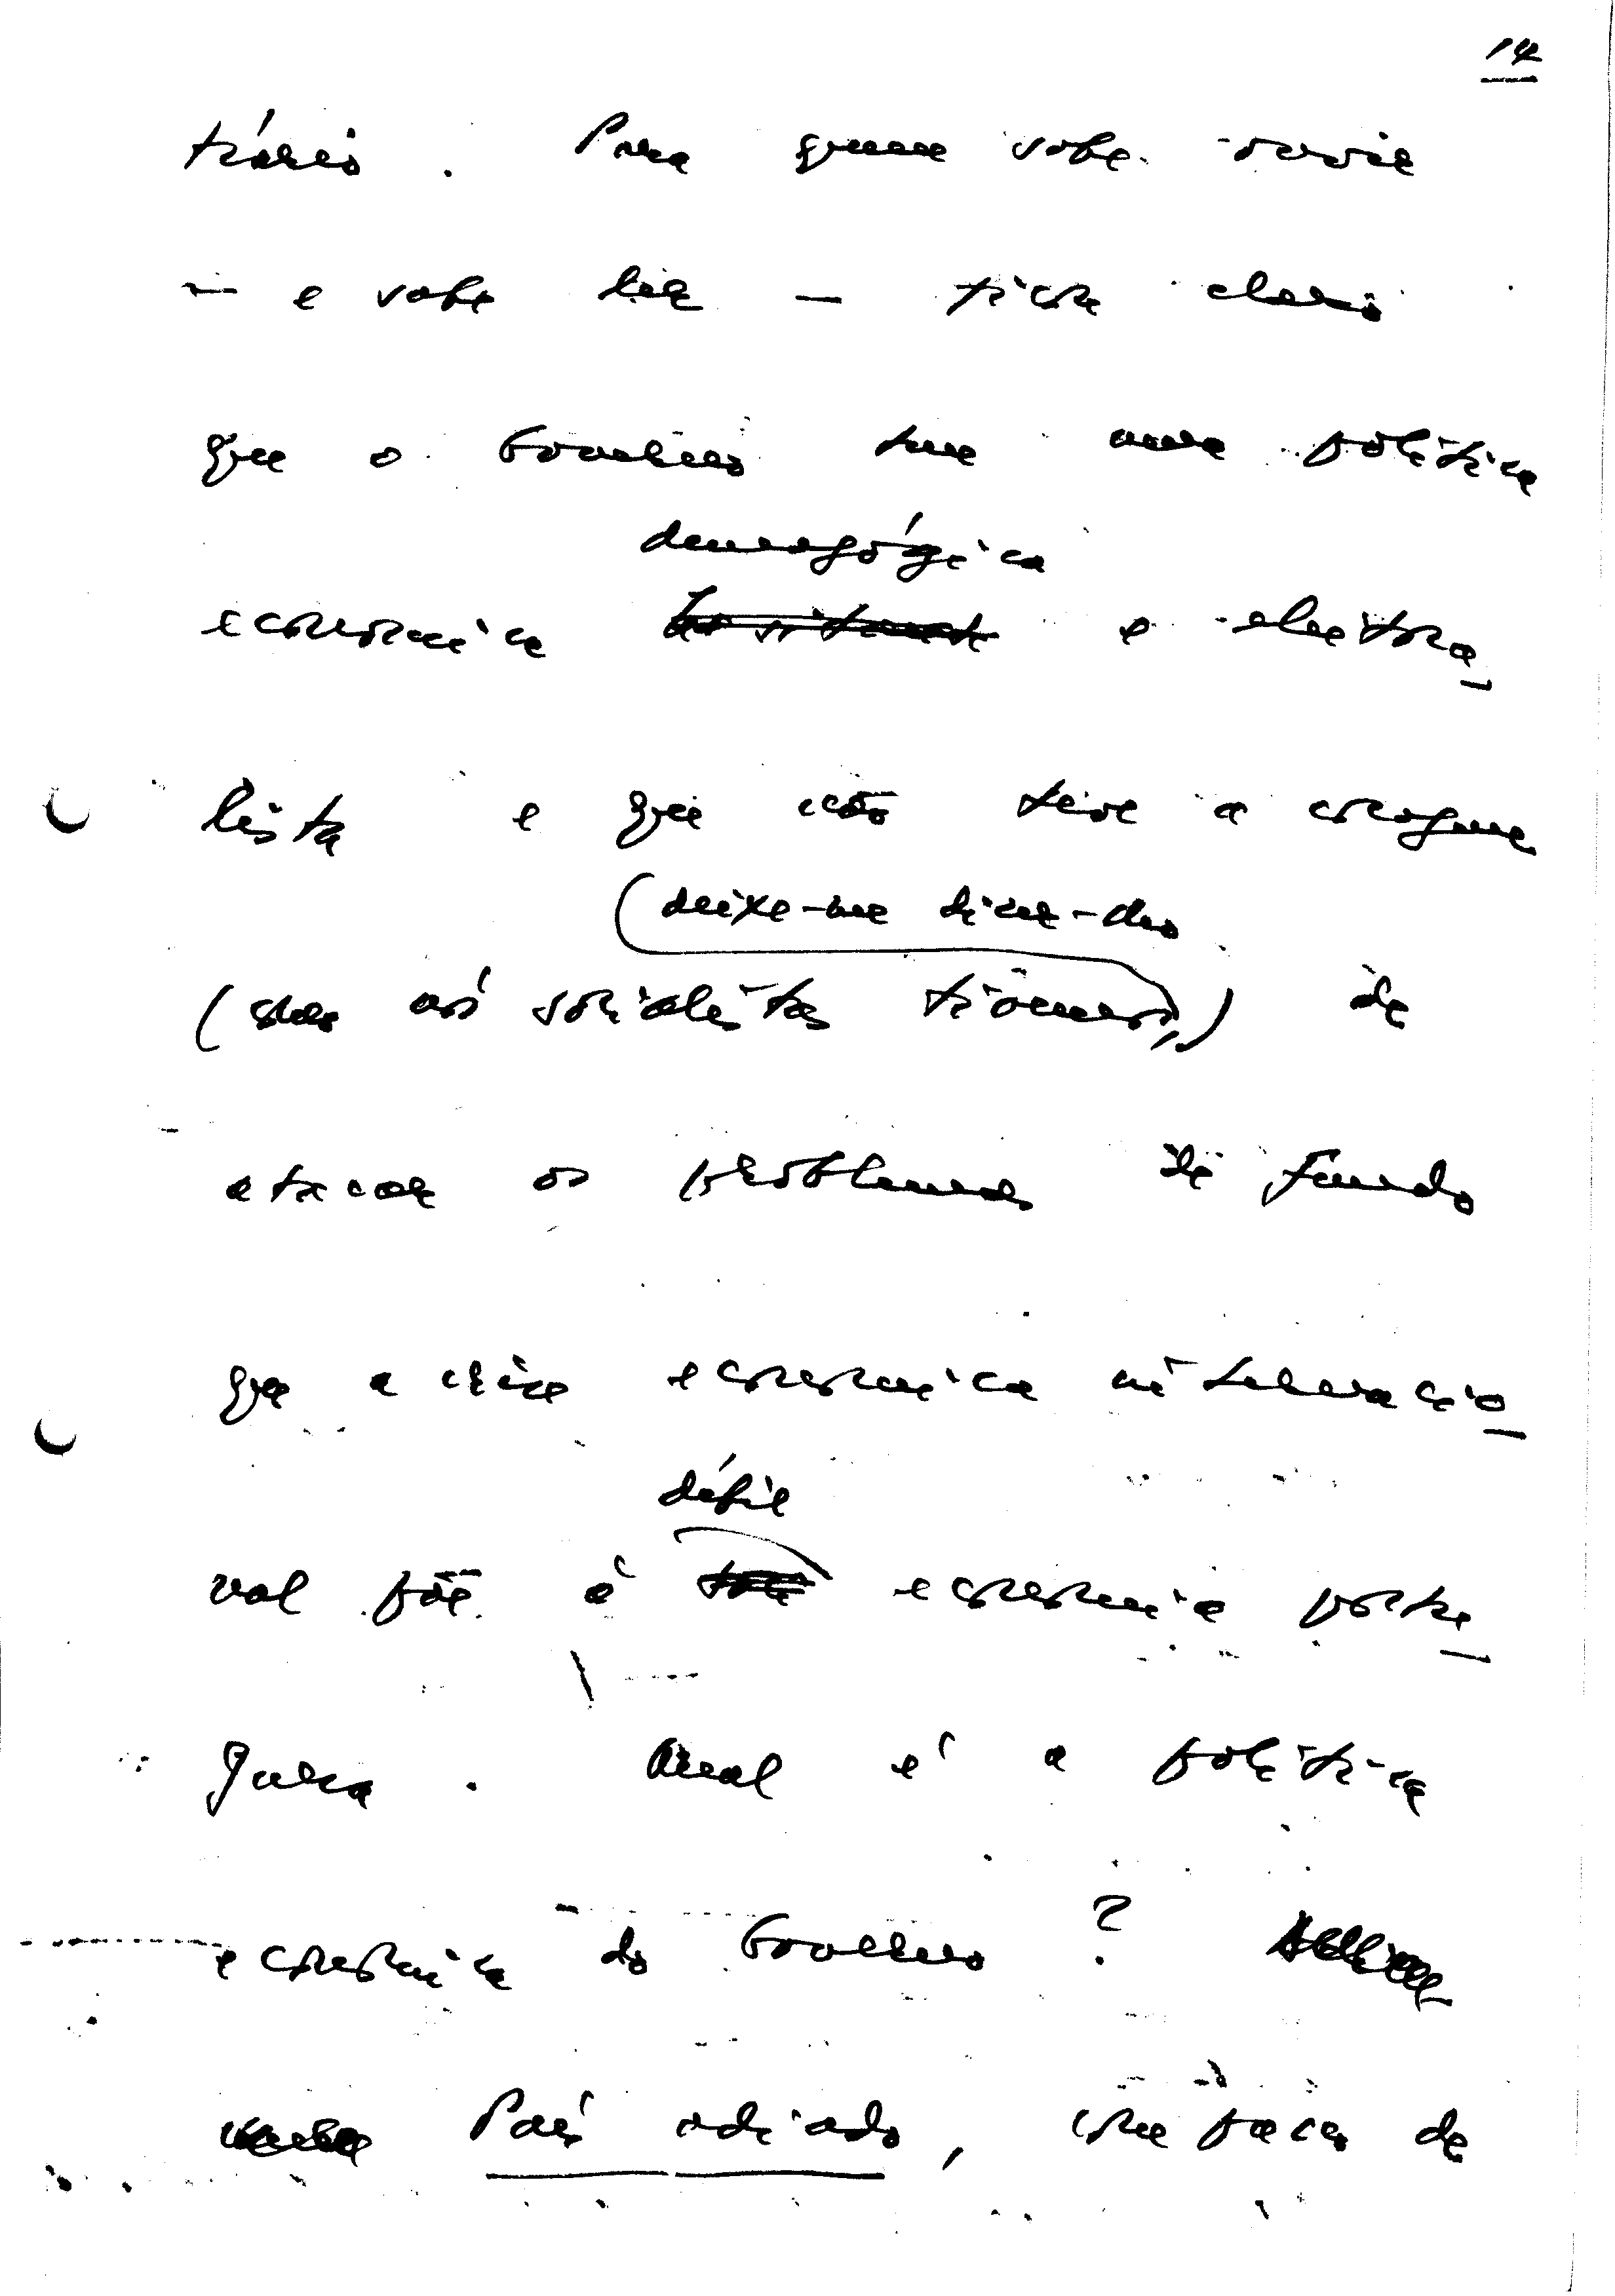 14
trário. Para quem sabe ouvir
— e sabe ler — fica claro
que o Governo tem uma política
demagógica
económica e eleitora_
lista e que não teve a coragem
(deixe-me dizer-dos
(nas aos socialistas tiveram,) de
atacar os problemas de fundo
que a crise económica internacio_
nal põe à
débil
economia portu_
guesa. Qual é a política
económica do Governo?
País adiado, com faces de